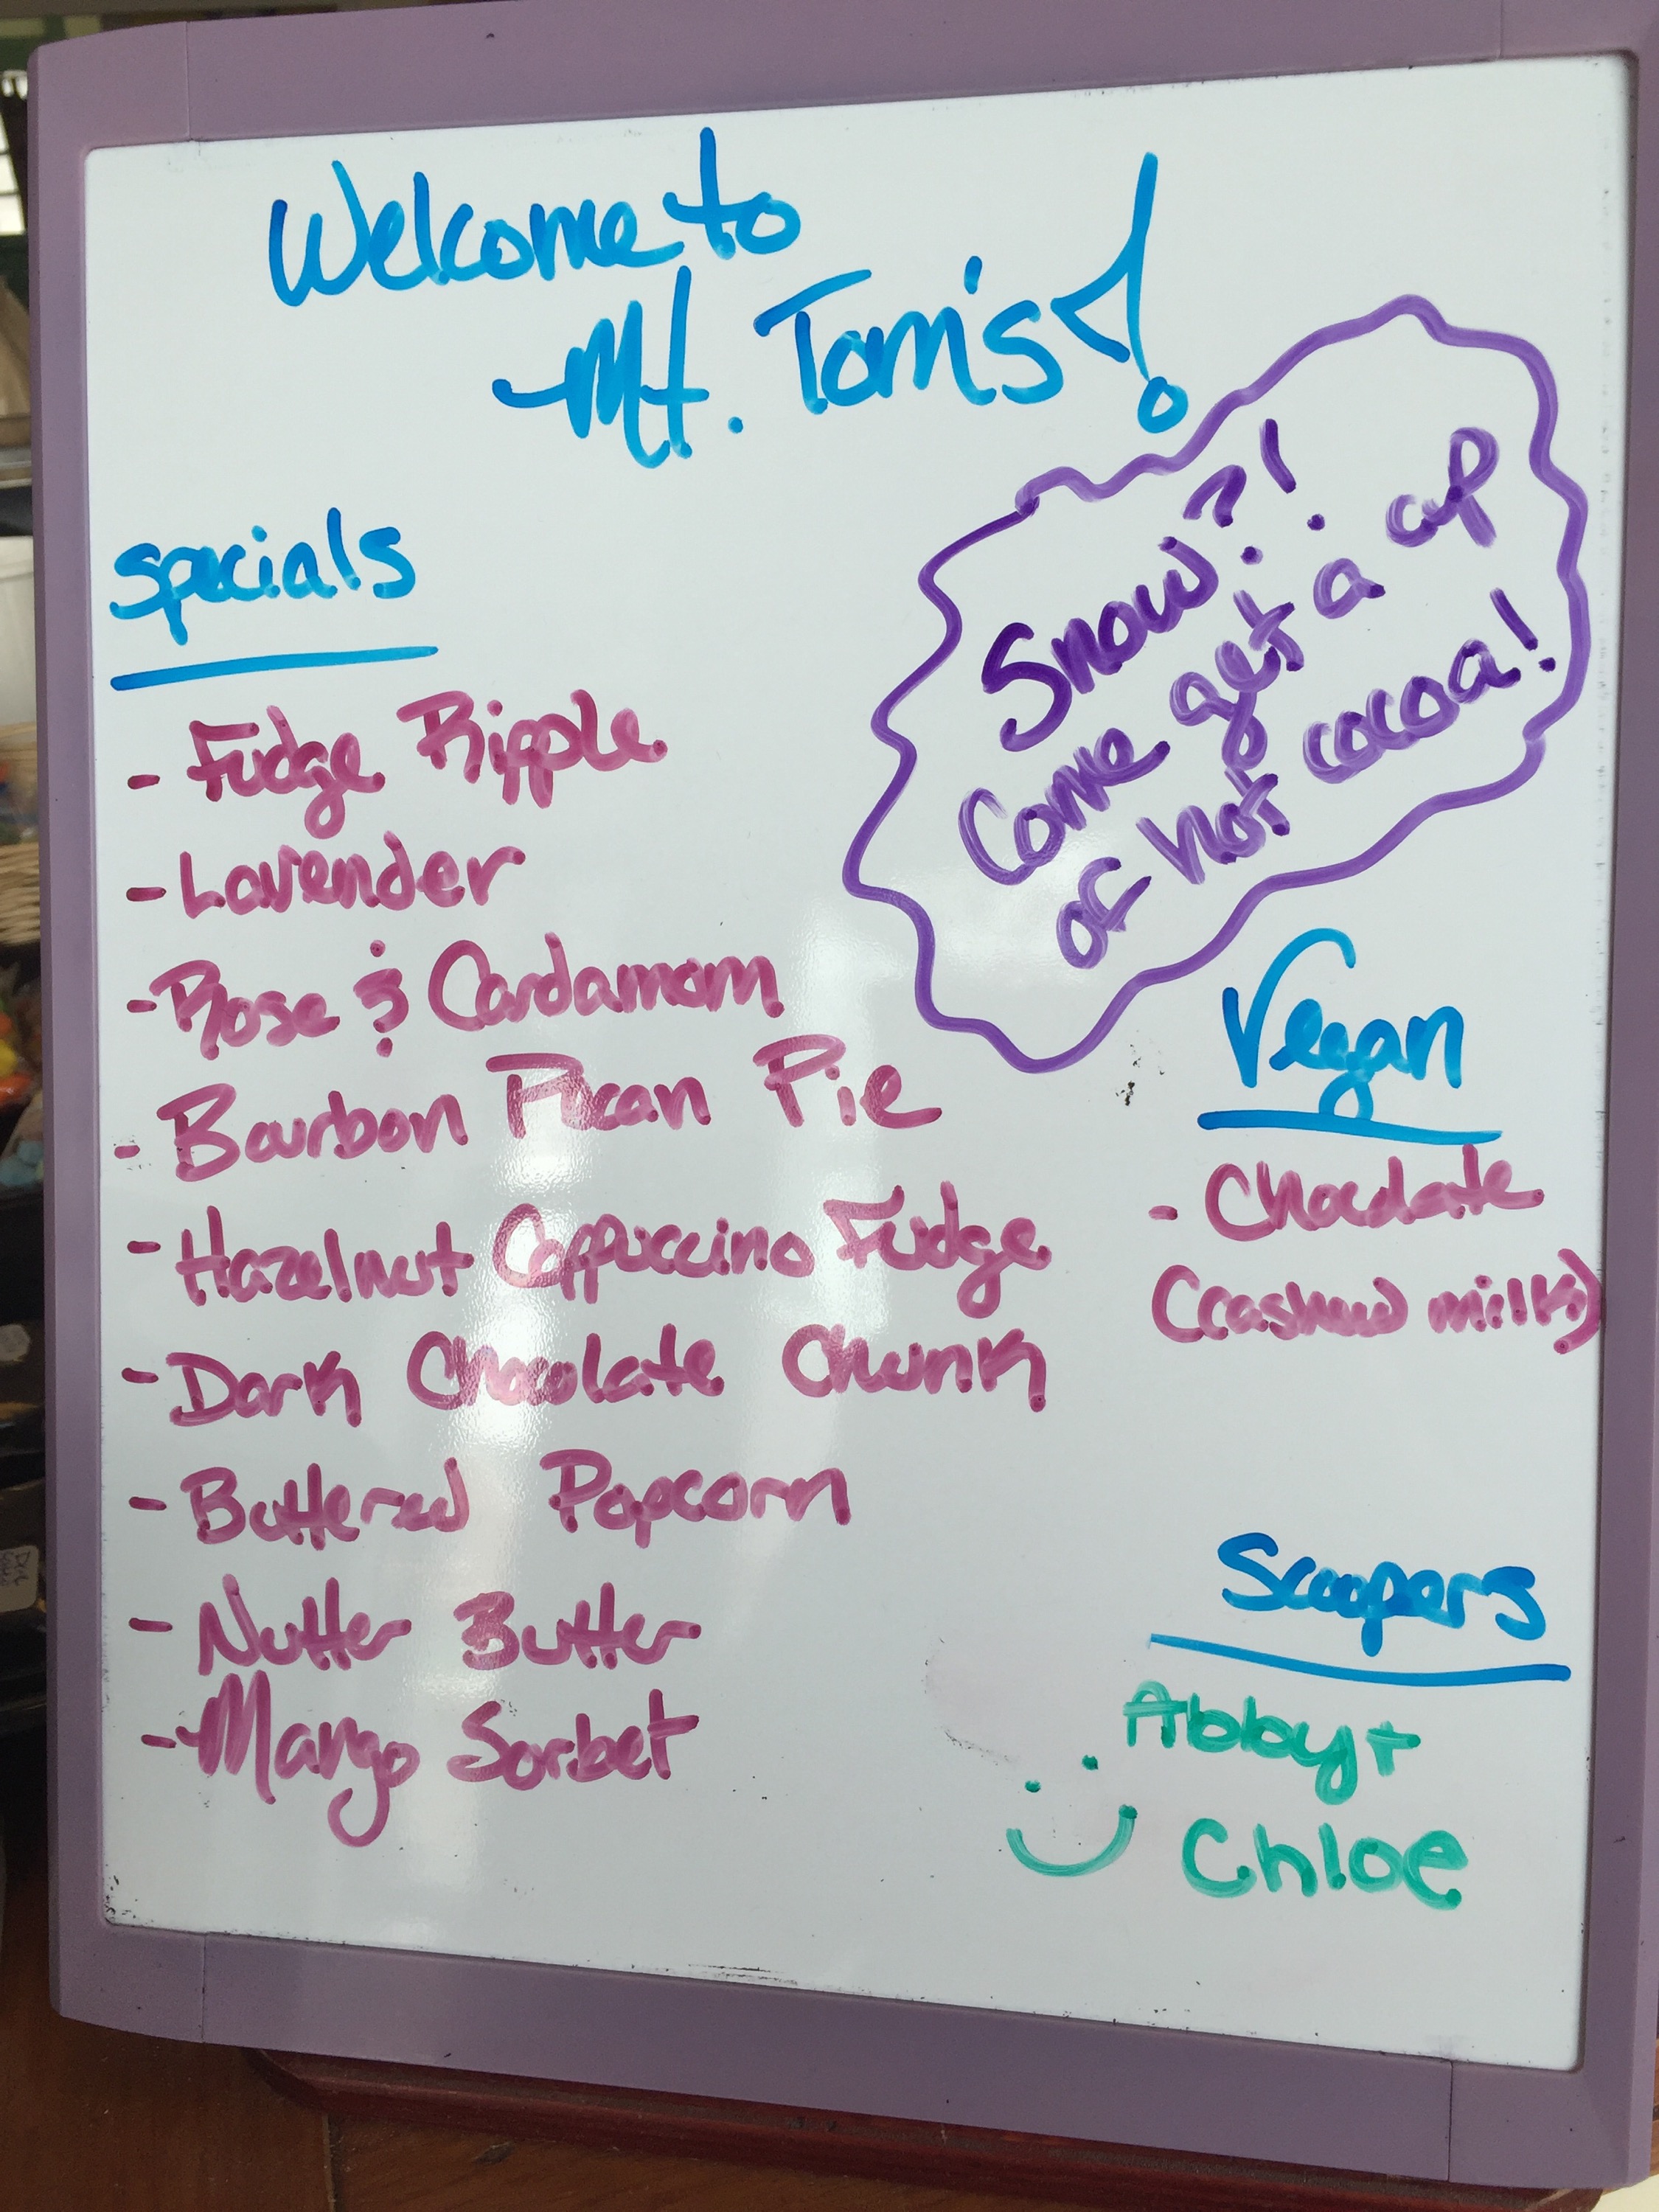 Welcome to
Mt. Tom's!
Snow?!
Come get a cup
of hot cocoa!
specials
- Fudge Ripple
- Lavender
- Rose & Cardamom
- Bourbon Pecan Pie
- Hazelnut Cappuccino Fudge
- Dark Chocolate Chunk
- Buttered Popcorn
- Nutter Butter
- Mango Sorbet
Vegan
- Chocolate
(cashew milk)
Scoopers
Abby +
Chloe